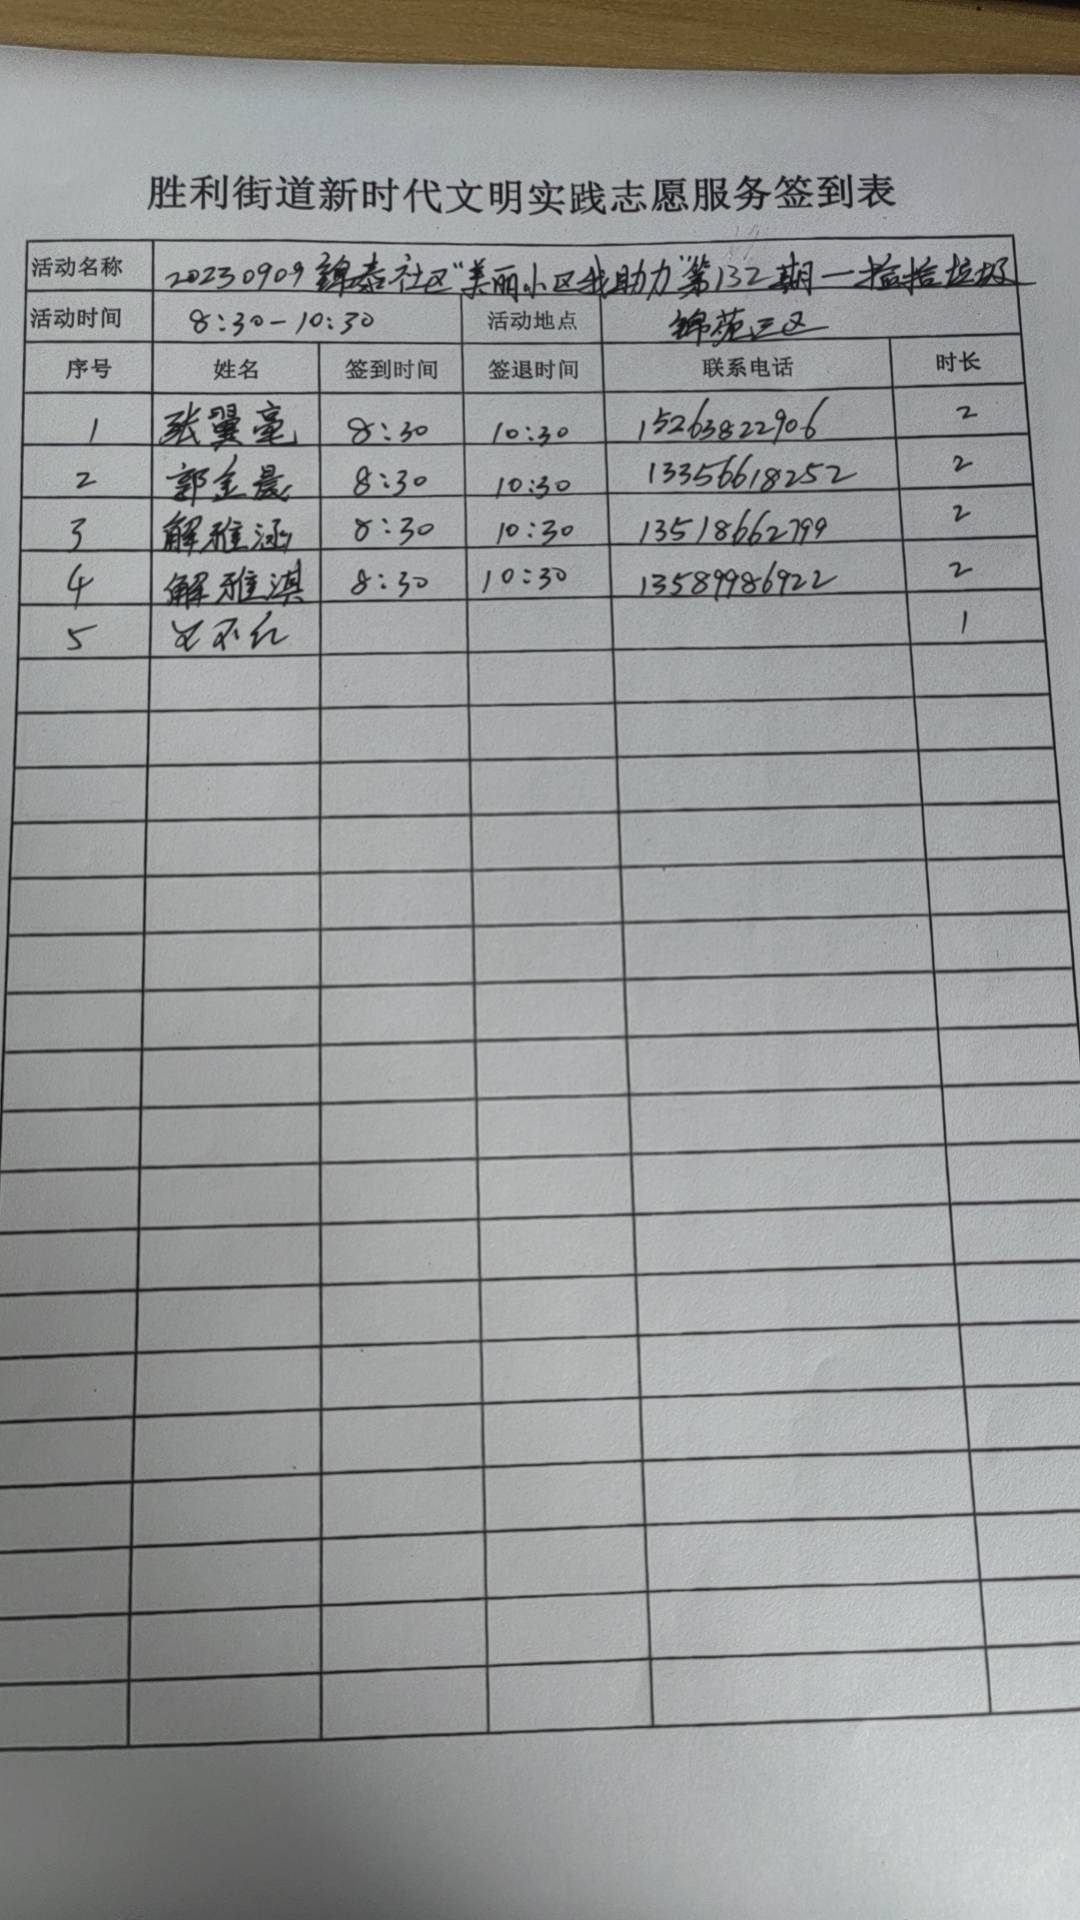 胜利街道新时代文明实践志愿服务签到表
活动名称 20230909锦泰社区“美丽小区我助力”第132期一捡拾垃圾
活动时间 8:30-10:30 活动地点 锦苑三区
序号 姓名 签到时间 签退时间 联系电话 时长
1 张翼毫 8:30 10:30 15263822906 2
2 郭金晨 8:30 10:30 13356618252 2
3 解雅涵 8:30 10:30 13518662799 2
4 解雅淇 8:30 10:30 13589986922 2
5 1